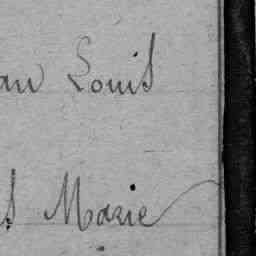 an Louis
s Marie